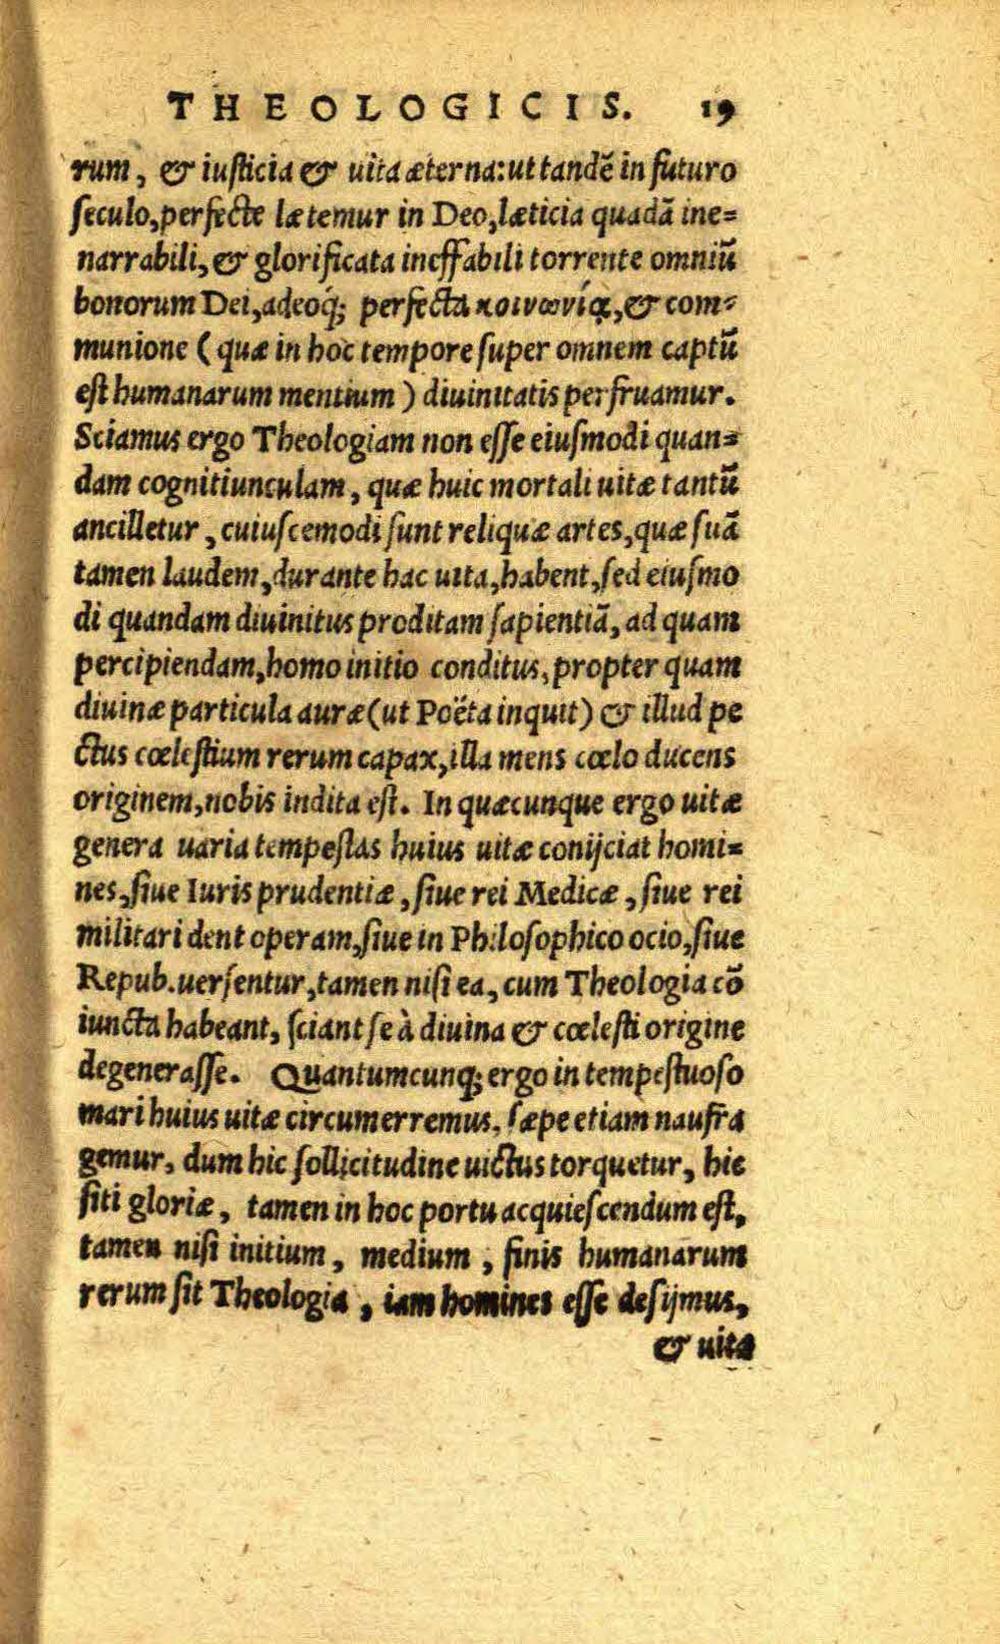 THEOLOGICIS. 19
rum, & iusticia & uita æterna: ut tandē in futuro
seculo, perfecte lætemur in Deo, læticia quadā ine=
narrabili, & glorificata ineffabili torrente omniū
bonorum Dei, adeoq́; perfecta κοινωνίᾳ, & com=
munione ( quæ in hoc tempore super omnem captū
est humanarum mentium ) diuinitatis perfruamur.
Sciamus ergo Theologiam non esse eiusmodi quan=
dam cognitiunculam, quæ huic mortali uitæ tantū
ancilletur, cuiuscemodi sunt reliquæ artes, quæ suā
tamen laudem, durante hac uita, habent, sed eiusmo
di quandam diuinitus proditam sapientiā, ad quam
percipiendam, homo initio conditus, propter quam
diuinæ particula auræ (ut Poëta inquit) & illud pe
ctus cœlestium rerum capax, illa mens cœlo ducens
originem, nobis indita est. In quæcunque ergo uitæ
genera uaria tempestas huius uitæ conijciat homi=
nes, siue Iuris prudentiæ, siue rei Medicæ, siue rei
militari dent operam, siue in Philosophico ocio, siue
Repub. uersentur, tamen nisi ea, cum Theologia cō
iuncta habeant, sciant se à diuina & cœlesti origine
degenerasse. Quantumcunq; ergo in tempestuoso
mari huius uitæ circumerremus, sæpe etiam naufra
gemur, dum hic sollicitudine uictus torquetur, hic
siti gloriæ, tamen in hoc portu acquiescendum est,
tamen nisi initium, medium, finis humanarum
rerum sit Theologia, iam homines esse desijmus,
& uita